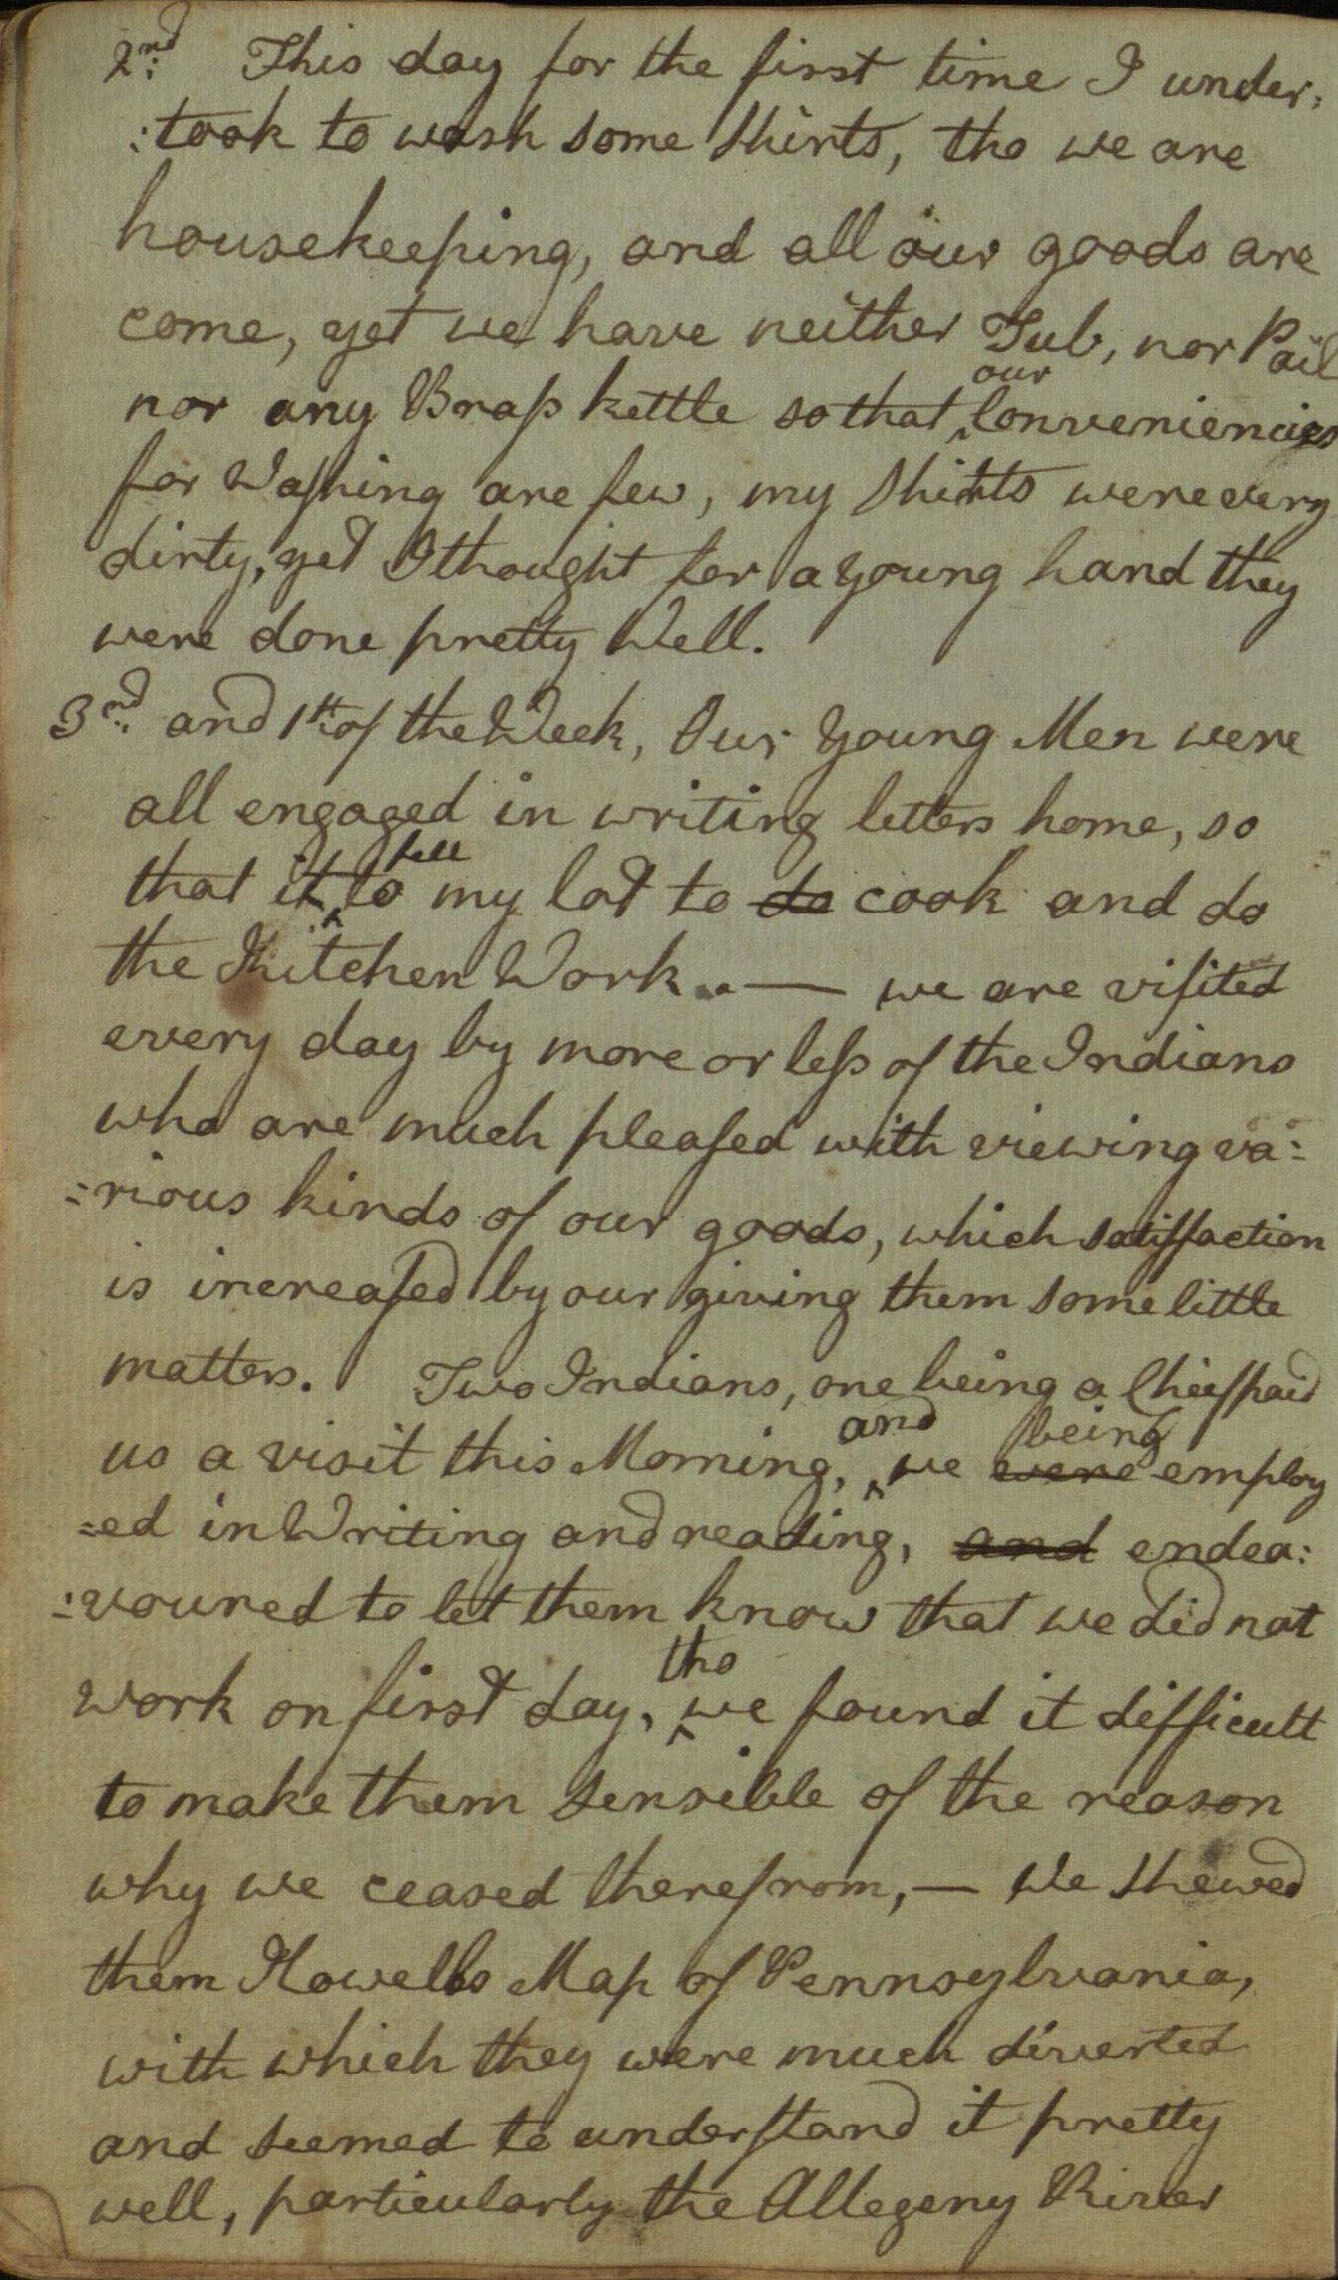 2nd: This day for the first time I under:
:took to wash some Shirts, tho we are
housekeeping, and all our goods are
come, yet we have neither Tub, nor Pail
nor any Braſs kettle so that our Conveniencies
for Waſhing are few, my Shirts were very
dirty, yet I thought for a young hand they
were done pretty Well.
3nd: and 1st: of the Week, Our Young Men were
all engaged in writing letters home, so
that it fell to my lot to do cook and do
the Kitchen Work. — we are viſited
every day by more or leſs of the Indians
who are much pleaſed with viewing va:
:rious kinds of our goods, which satiſfaction
is increaſed by our giving them some little
matters. Two Indians, one being a Chief paid
us a visit this Morning, and we were being employ
=ed in Writing and reading, and endea:
:voured to let them know that we did not
work on first day, tho we found it difficult
to make them sensible of the reason
why we ceased therefrom, — We Shewed
them Howells Map of Pennsylvania,
with which they were much diverted
and seemed to underſtand it pretty
well, particularly the Allegeny River